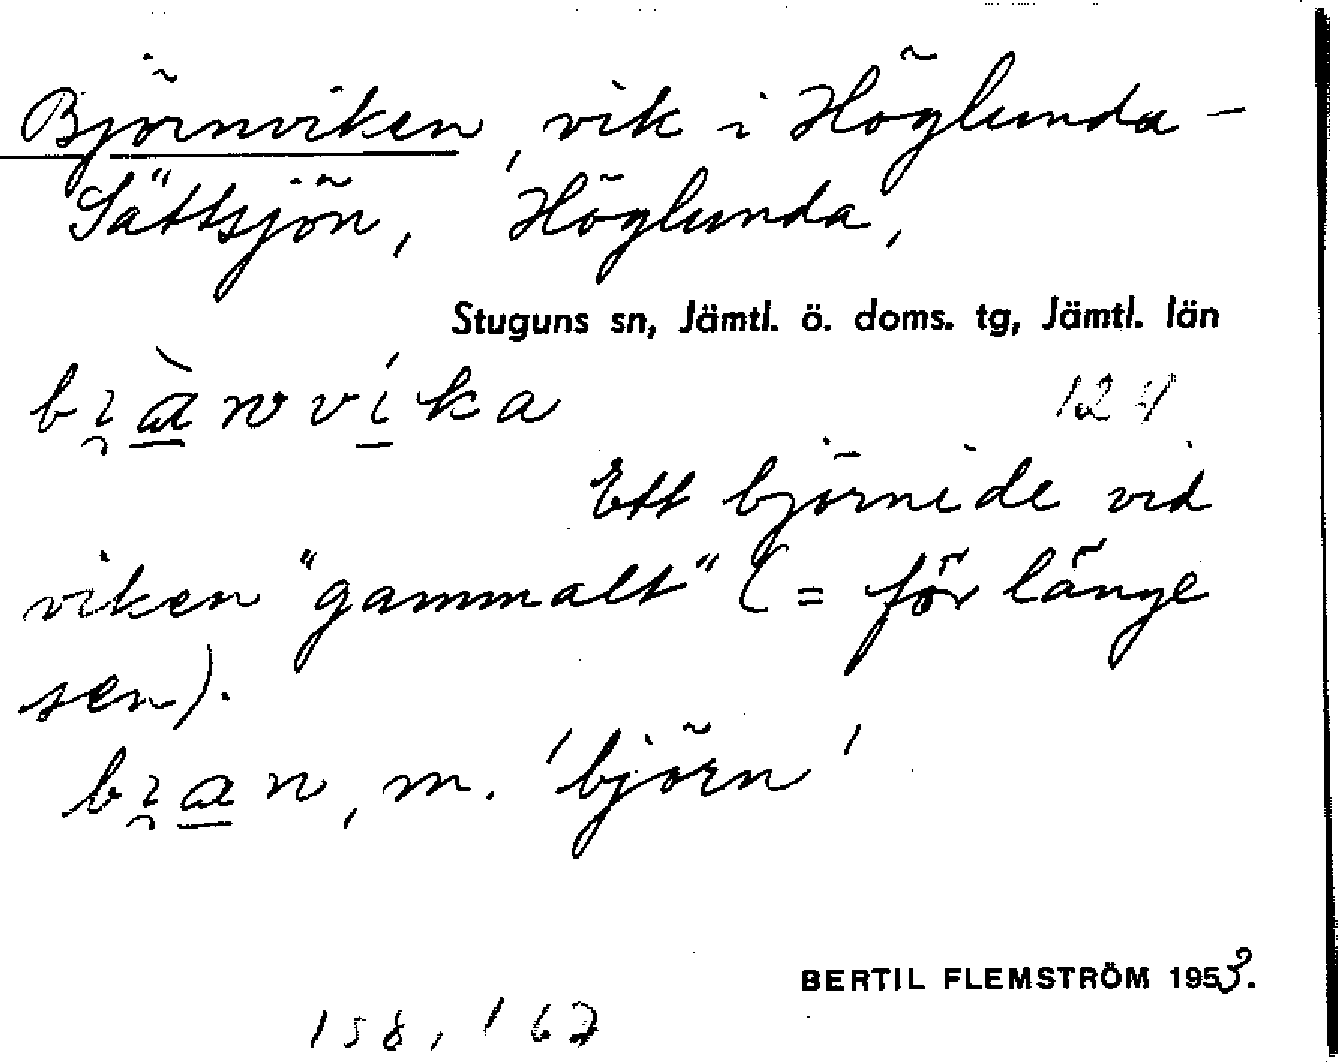 Björnviken, vik i Höglunda-
Sättsjön, Höglunda,
Stuguns sn, Jämtl. ö. doms. tg, Jämtl. län
bi̯æ̀nvíka 124
Ett björnide vid
viken "gammalt" (= för länge
sen).
bi̯æn, m. 'björn'
BERTIL FLEMSTRÖM 1953.
158, 162